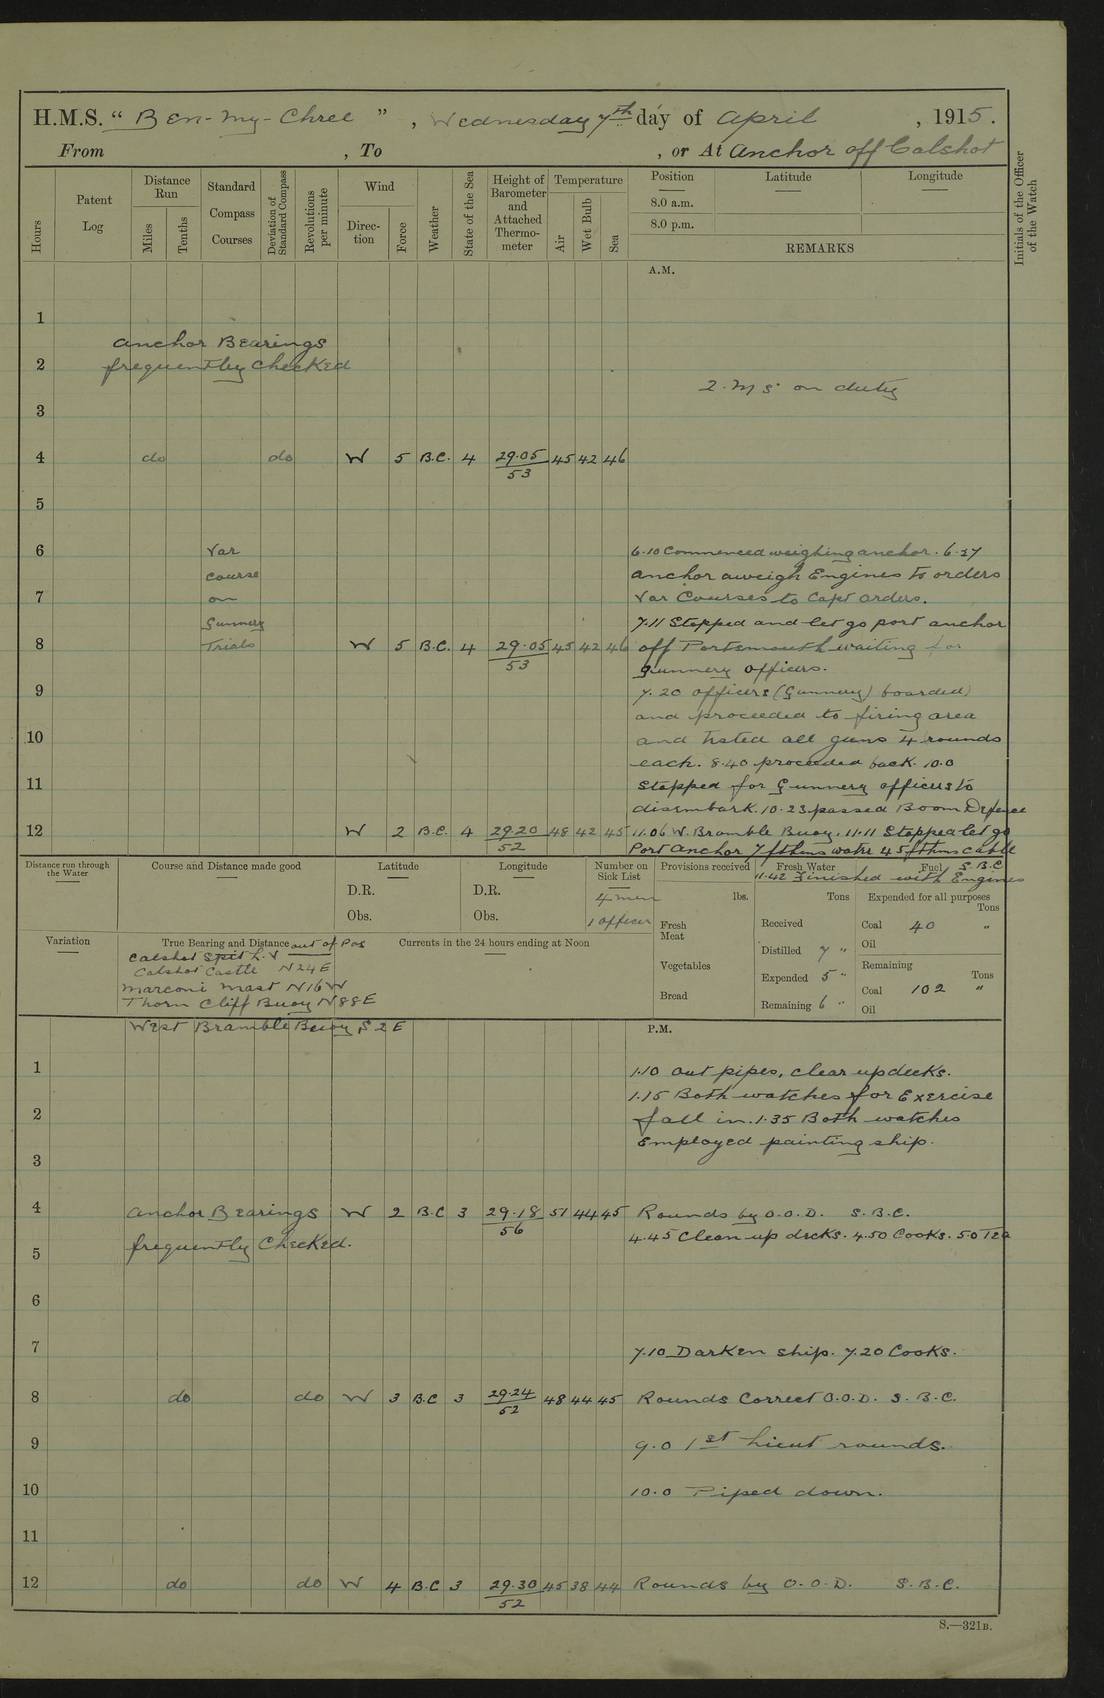 H.M.S. “ Ben-my-Chree ” , Wednesday 7th day of April , 1915.
From , To , or At Anchor off Calshot
Hours
Patent Log
Distance Run
Miles
Tenths
Standard Compass Courses
Deviation of Standard Compass
Revolutions per minute
Wind
Direction
Force
Weather
State of the Sea
Height of Barometer and Attached Thermometer
Temperature
Air
Wet Bulb
Sea
Position
8.0 a.m.
8.0 p.m.
Latitude
Longitude
REMARKS
Initials of the Officer of the Watch
A.M.
1
anchor Bearings
2 frequently Checked
2. M S. on duty
3
4 do do W 5 B.C. 4 29.05/53 45 42 46
5
6 Var 6.10 Commenced weighing anchor. 6.37
course anchor aweigh Engines to orders
7 on Var Courses to Capt orders.
Gunnery 7.11 Stopped and let go port anchor
8 Trials W 5 B.C. 4 29.05/53 45 42 46 off Portsmouth waiting for
Gunnery officers.
9 7.20 officers (Gunnery) boarded
and proceeded to firing area
10 and tested all guns 4 rounds
each. 8.40 proceeded back. 10.0
11 Stopped for Gunnery officers to
disembark. 10.23 passed Boom Defence
12 W 2 B.C. 4 29.20/52 48 42 45 11.06 W. Bramble Buoy. 11.11 Stopped let go
Port Anchor 7 fthms watr 45 fthms cable
S.B.C
11.42 Finished with Engines
Distance run through the Water
Course and Distance made good
Latitude
D.R.
Obs.
Longitude
D.R.
Obs.
Number on Sick List
4 men
1 officer
Provisions received
lbs.
Fresh Meat
Vegetables
Bread
Fresh Water
Tons
Received
Distilled 7 "
Expended 5 "
Remaining 6 "
Fuel
Expended for all purposes
Tons
Coal 40 "
Oil
Remaining
Tons
Coal 102 "
Oil
Variation
True Bearing and Distance out of Pos
Calshot Spit L.V
Calshot Castle N24E
Marconi Mast N16W
Thorn Cliff Buoy N88E
West Bramble Buoy S2E
Currents in the 24 hours ending at Noon
P.M.
1 1.10 out pipes, clear up decks.
1.15 Both watches for Exercise
2 fall in. 1.35 Both watches
Employed painting ship.
3
4 anchor Bearings W 2 B.C 3 29.18/56 51 44 45 Rounds by O.O.D. S.B.C.
frequently Checked. 4.45 Clean up decks. 4.50 Cooks. 5.0 Tea
5
6
7 7.10 Darken ship. 7.20 Cooks.
8 do do W 3 B.C 3 29.24/52 48 44 45 Rounds Correct O.O.D. S.B.C.
9 9.0 1st Lieut rounds.
10 10.0 Piped down.
11
12 do do W 4 B.C 3 29.30/52 45 38 44 Rounds by O.O.D. S.B.C.
S.—321B.